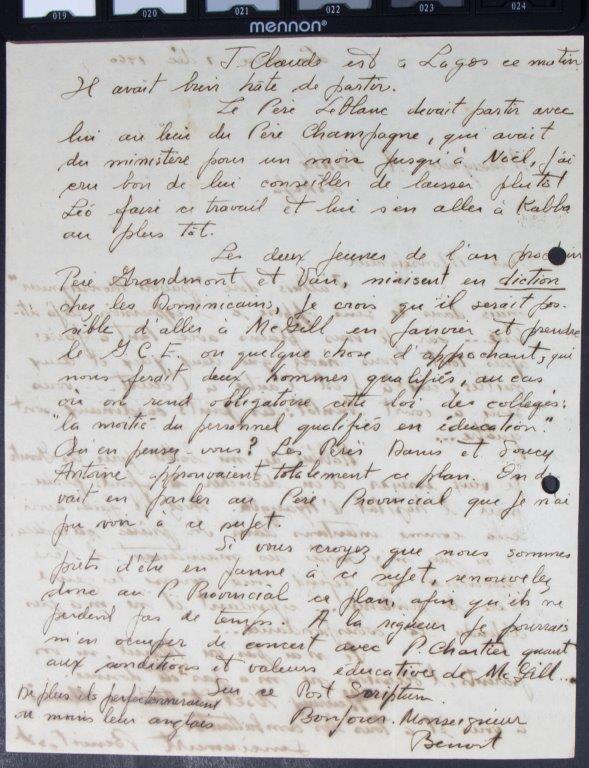 019 020 021 022 023 024
mennon®
J. Claude est à Lagos ce matin
Il avait bien hâte de partir.
Le Père Leblanc devait partir avec
lui au lieu du Père Champagne, qui avait
du ministère pour un mois jusqu'à Noël, j'ai
cru bon de lui conseiller de laisser plutôt
Léo faire ce travail et lui s'en aller à Kabba
au plus tôt.
Les deux jeunes de l'an prochain
Père Grandmont et en diction
chez les Dominicains, je crois qu'il serait pos-
sible d'aller à McGill en janvier et prendre
le G.C.E. ou quelque chose d'approchant, qui
nous ferait deux hommes qualifiés, au cas
où on rend obligatoire cette loi des collèges:
"la moitié du personnel qualifiés en éducation."
Qu'en pensez vous? Les Pères et Soucy
Antoine approuvaient totalement ce plan. On de-
vait en parler au Père Provincial que je n'ai
pu voir à ce sujet.
Si vous croyez que nous sommes
prêts d'être en panne à ce sujet, renouvelez
donc au P. Provincial ce plan, afin qu'ils ne
perdent pas de temps. A la rigueur je pourrais
m'en occuper de concert avec P. Chartier quant
aux conditions et valeurs éducatives de McGill...
Sur ce Post Scriptum.
De plus ils perfectionneraient
au moins leur anglais
Bonjour Monseigneur
Benoit